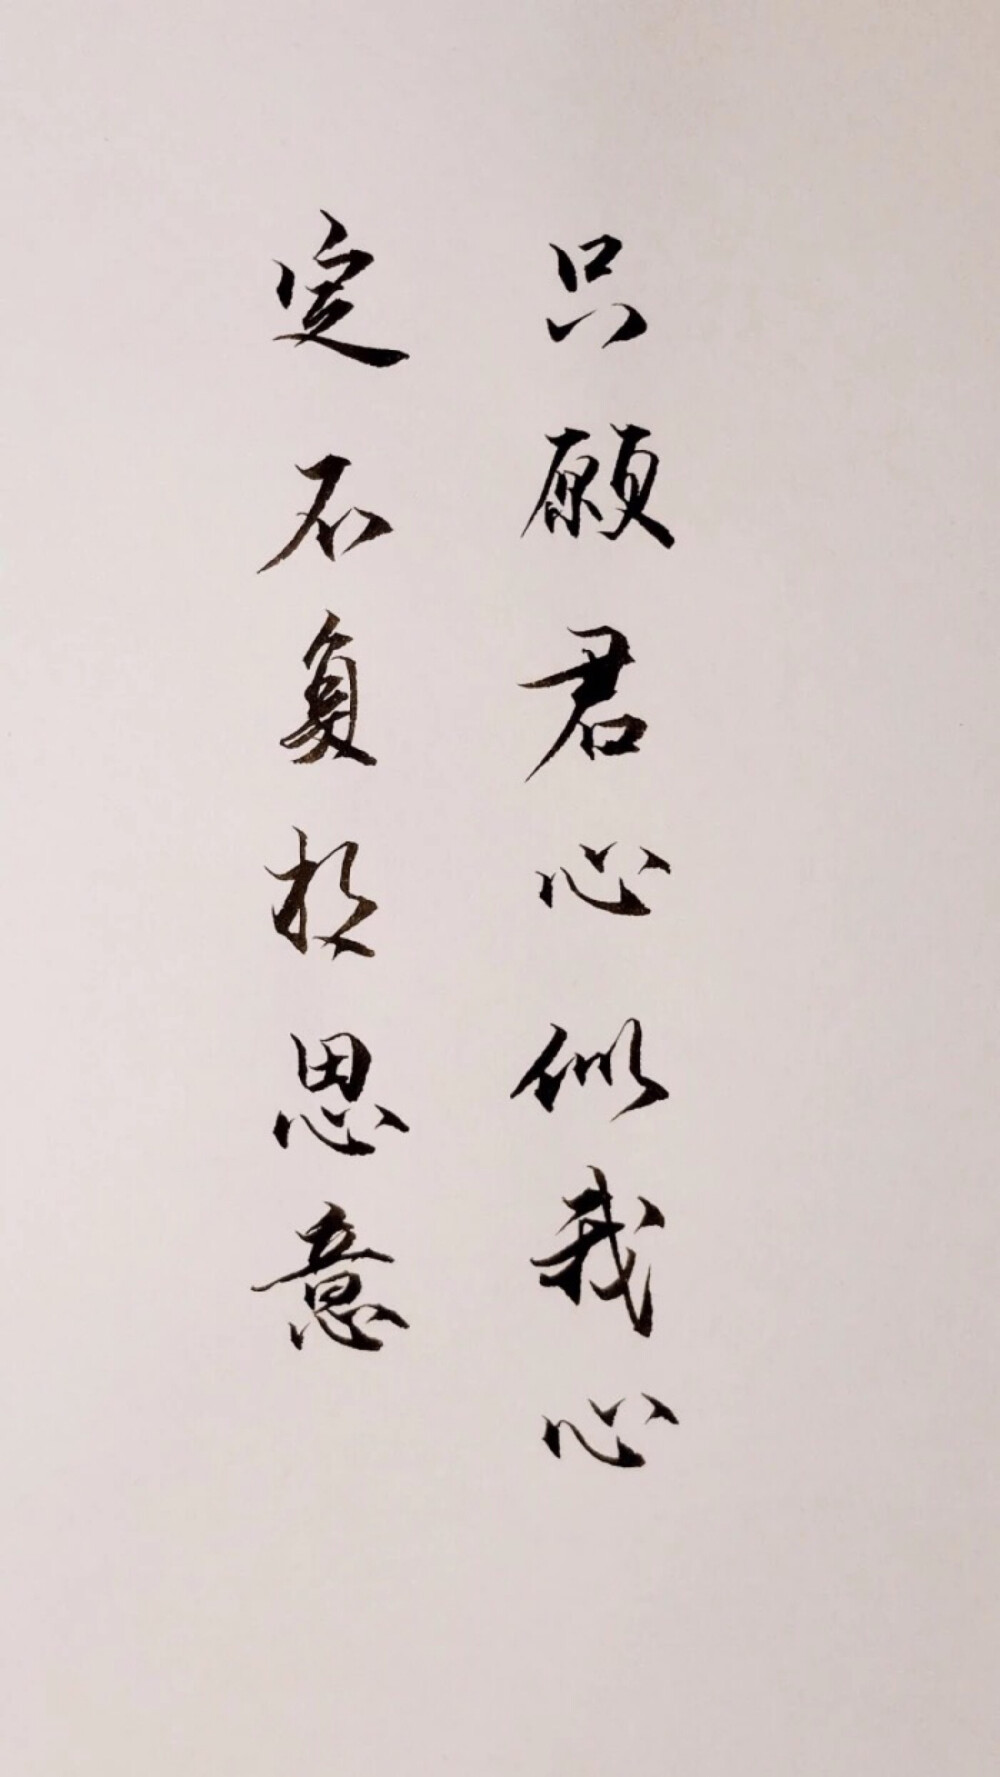 只愿君心似我心
定不负相思意